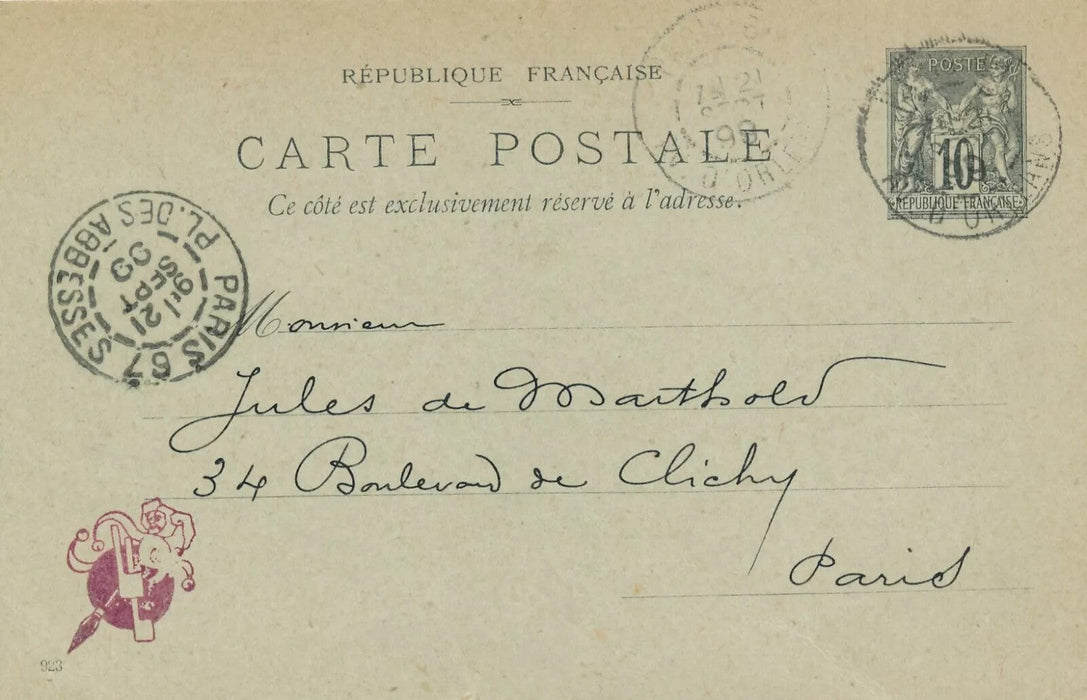 RÉPUBLIQUE FRANÇAISE
CARTE POSTALE
Ce côté est exclusivement réservé à l'adresse.
POSTE
10
RÉPUBLIQUE FRANÇAISE
D'ORLEANS
21
99
D'ORL
PARIS 67
PL. DES ABBESSES
21
SEPT
99
Monsieur
Jules de Marthold
34 Boulevard de Clichy
Paris
923